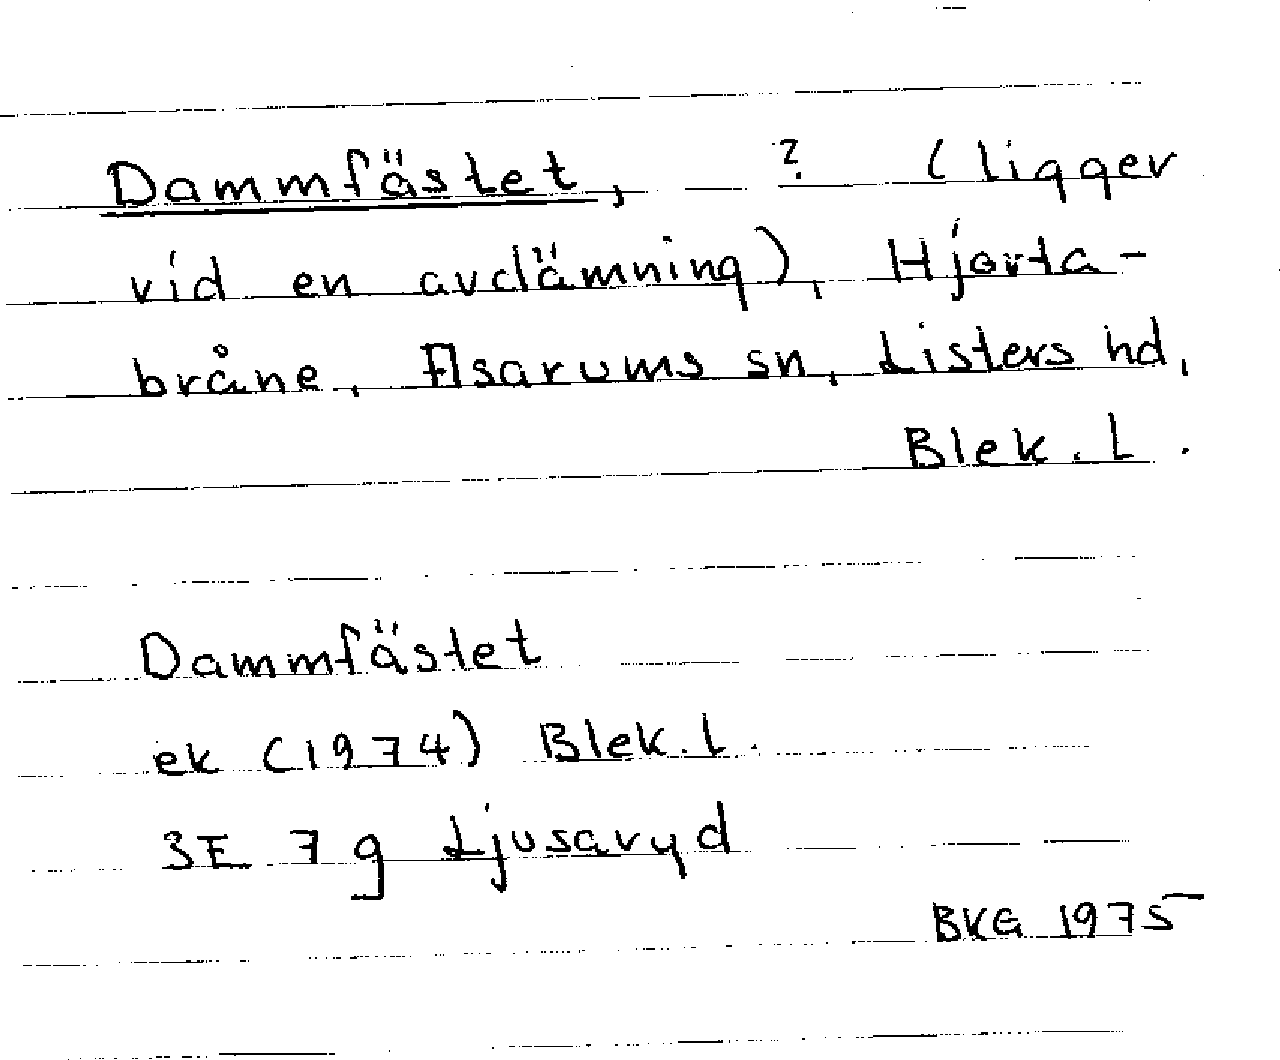 Dammfästet, ? (ligger
vid en avdämning), Hjorta-
bråne, Asarums sn, Listers hd,
Blek. l.
Dammfästet
ek (1974) Blek. l.
3E 7g Ljusaryd
BKG 1975